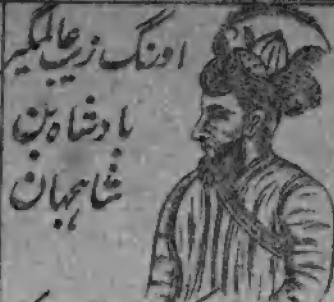 اورنگ زیب عالمگیر
بادشاہ بن
شاہجہان